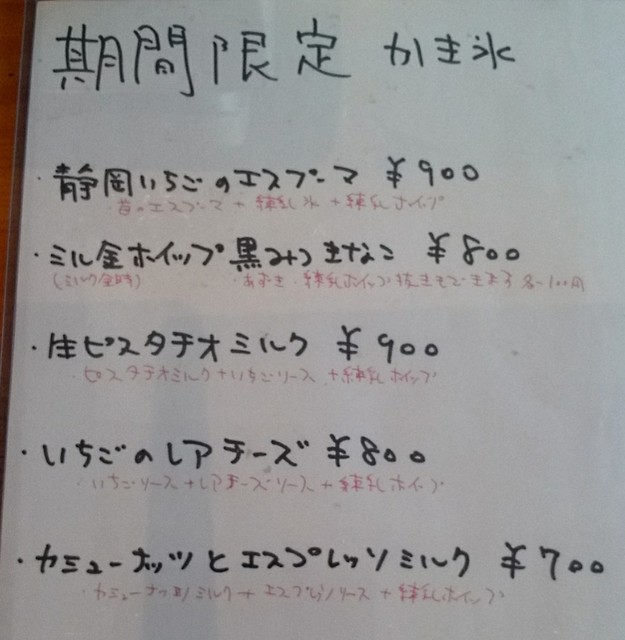 期間限定 かき氷
・静岡いちごのエスプーマ ¥900
苺のエスプーマ + 練乳氷 + 練乳ホイップ
・ミル金ホイップ黒みつきなこ ¥800
(ミルク金時) ・あずき・練乳ホイップ抜きもできます 各-100円
・生ピスタチオミルク ¥900
・ピスタチオミルク+いちごソース +練乳ホイップ
・いちごのレアチーズ ¥800
・いちごソース+レアチーズソース+練乳ホイップ
・カシューナッツとエスプレッソミルク ¥700
・カシューナッツミルク+エスプレッソソース+練乳ホイップ